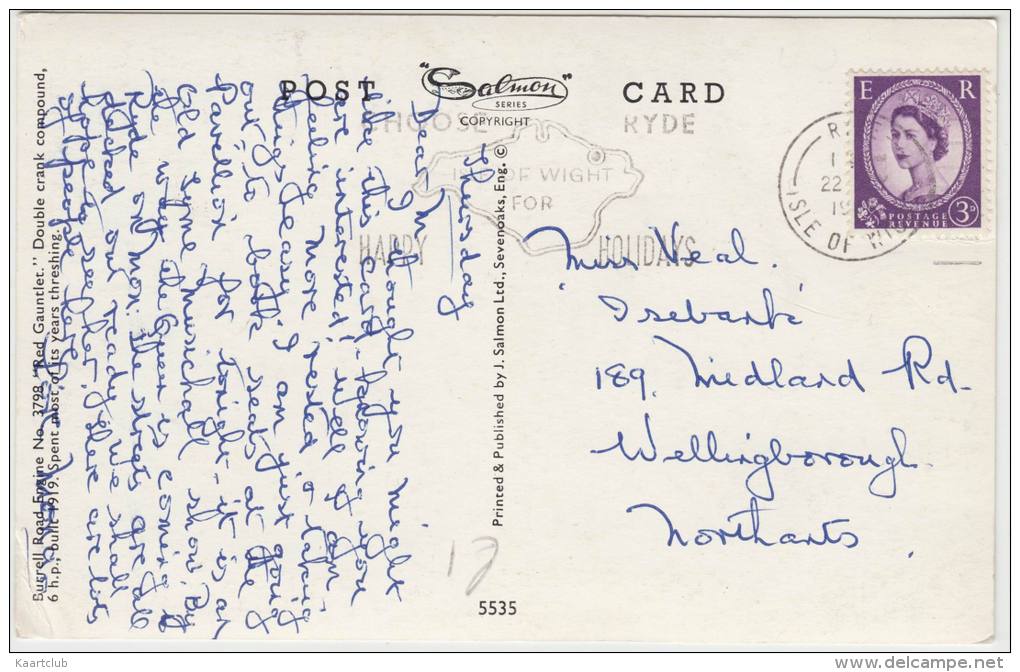 POST CARD
"Salmon"
SERIES
COPYRIGHT
CHOOSE RYDE
ISLE OF WIGHT
FOR
HAPPY HOLIDAYS
E R
POSTAGE
REVENUE
3D
22
19
ISLE OF
Thursday
Dear M
I thought you might
like this card - knowing you
are interested! well I am
feeling more rested, & taking
things easy. I am just going
out to book seats at the
Pavilion for tonight - it is an
Old Tyme Musichall show. By
the way the Queen is coming to
Ryde on Mon: the streets are all
decked out ready. We shall
hope to see her, there are lots
of people here.
Miss Neal.
'Isebank'
189, Midland Rd.
Wellingborough.
Northants.
Burrell Road Engine No. 3798 "Red Gauntlet." Double crank compound,
6 h.p., built 1919. Spent most of its years threshing.
Printed & Published by J. Salmon Ltd., Sevenoaks, Eng. ©
12
5535
Kaartclub
www.delcampe.net